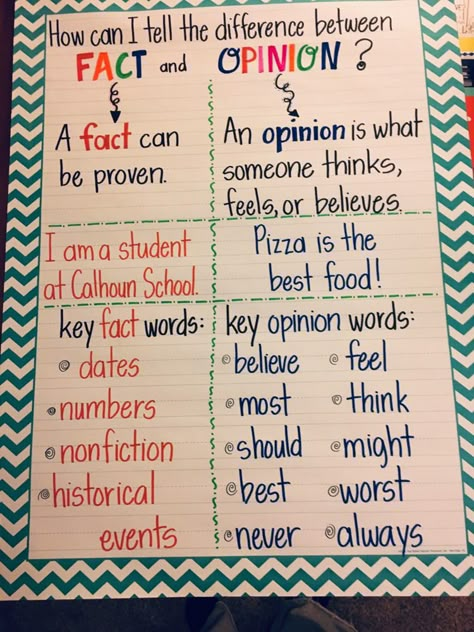 How can I tell the difference between
FACT and OPINION ?
A fact can
be proven.
An opinion is what
someone thinks,
feels, or believes.
I am a student
at Calhoun School.
Pizza is the
best food!
key fact words:
dates
numbers
nonfiction
historical
events
key opinion words:
believe
feel
most
think
should
might
best
worst
never
always